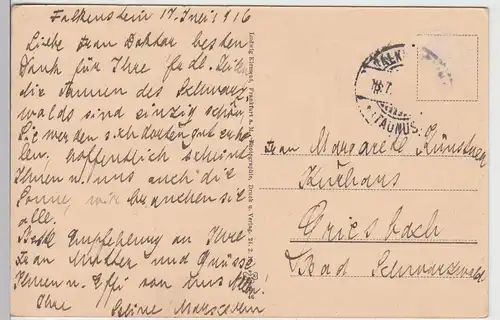 Falkenstein 17. Juli 1916
Liebe Frau Doktor besten
Dank für Ihre frdl. Zeilen
die Tannen des Schwarz-
walds sind einzig schön
Sie werden sich dort gut erho-
len, hoffentlich scheint
Ihnen u. uns auch die
Sonne, wir brauchen sie
alle.
Beste Empfehlung an Ihre
Frau Mutter und Grüsse
Ihnen u. Effi von uns Allen.
Ihre
Ludwig Klement, Frankfurt a. M.
Druck u. Verlag.
FALK
16.7.
(TAUNUS)
Frau Margarete Künstner
Kurhaus
Griesbach
Bad Schwarzwald